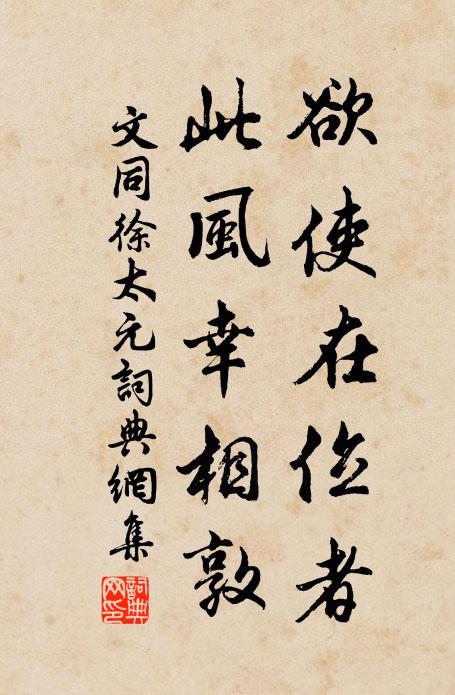 欲使在位者
此風幸相敦
文同徐太元詞典網集
詞典网印